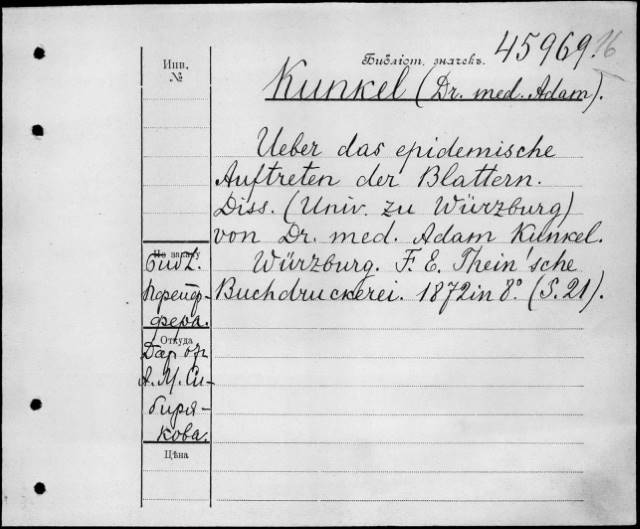 Инв. №
Библіот. значекъ. 45969.16
Kunkel (Dr. med. Adam).
Ueber das epidemische
Auftreten der Blattern.
Diss. (Univ. zu Würzburg)
von Dr. med. Adam Kunkel.
Würzburg. F. E. Thein'sche
Buchdruckerei. 1872 in 8° (S. 21).
По заказу
Библ.
Пфейф-
фера.
Откуда
Дар от
А. М. Си-
биря-
кова.
Цѣна